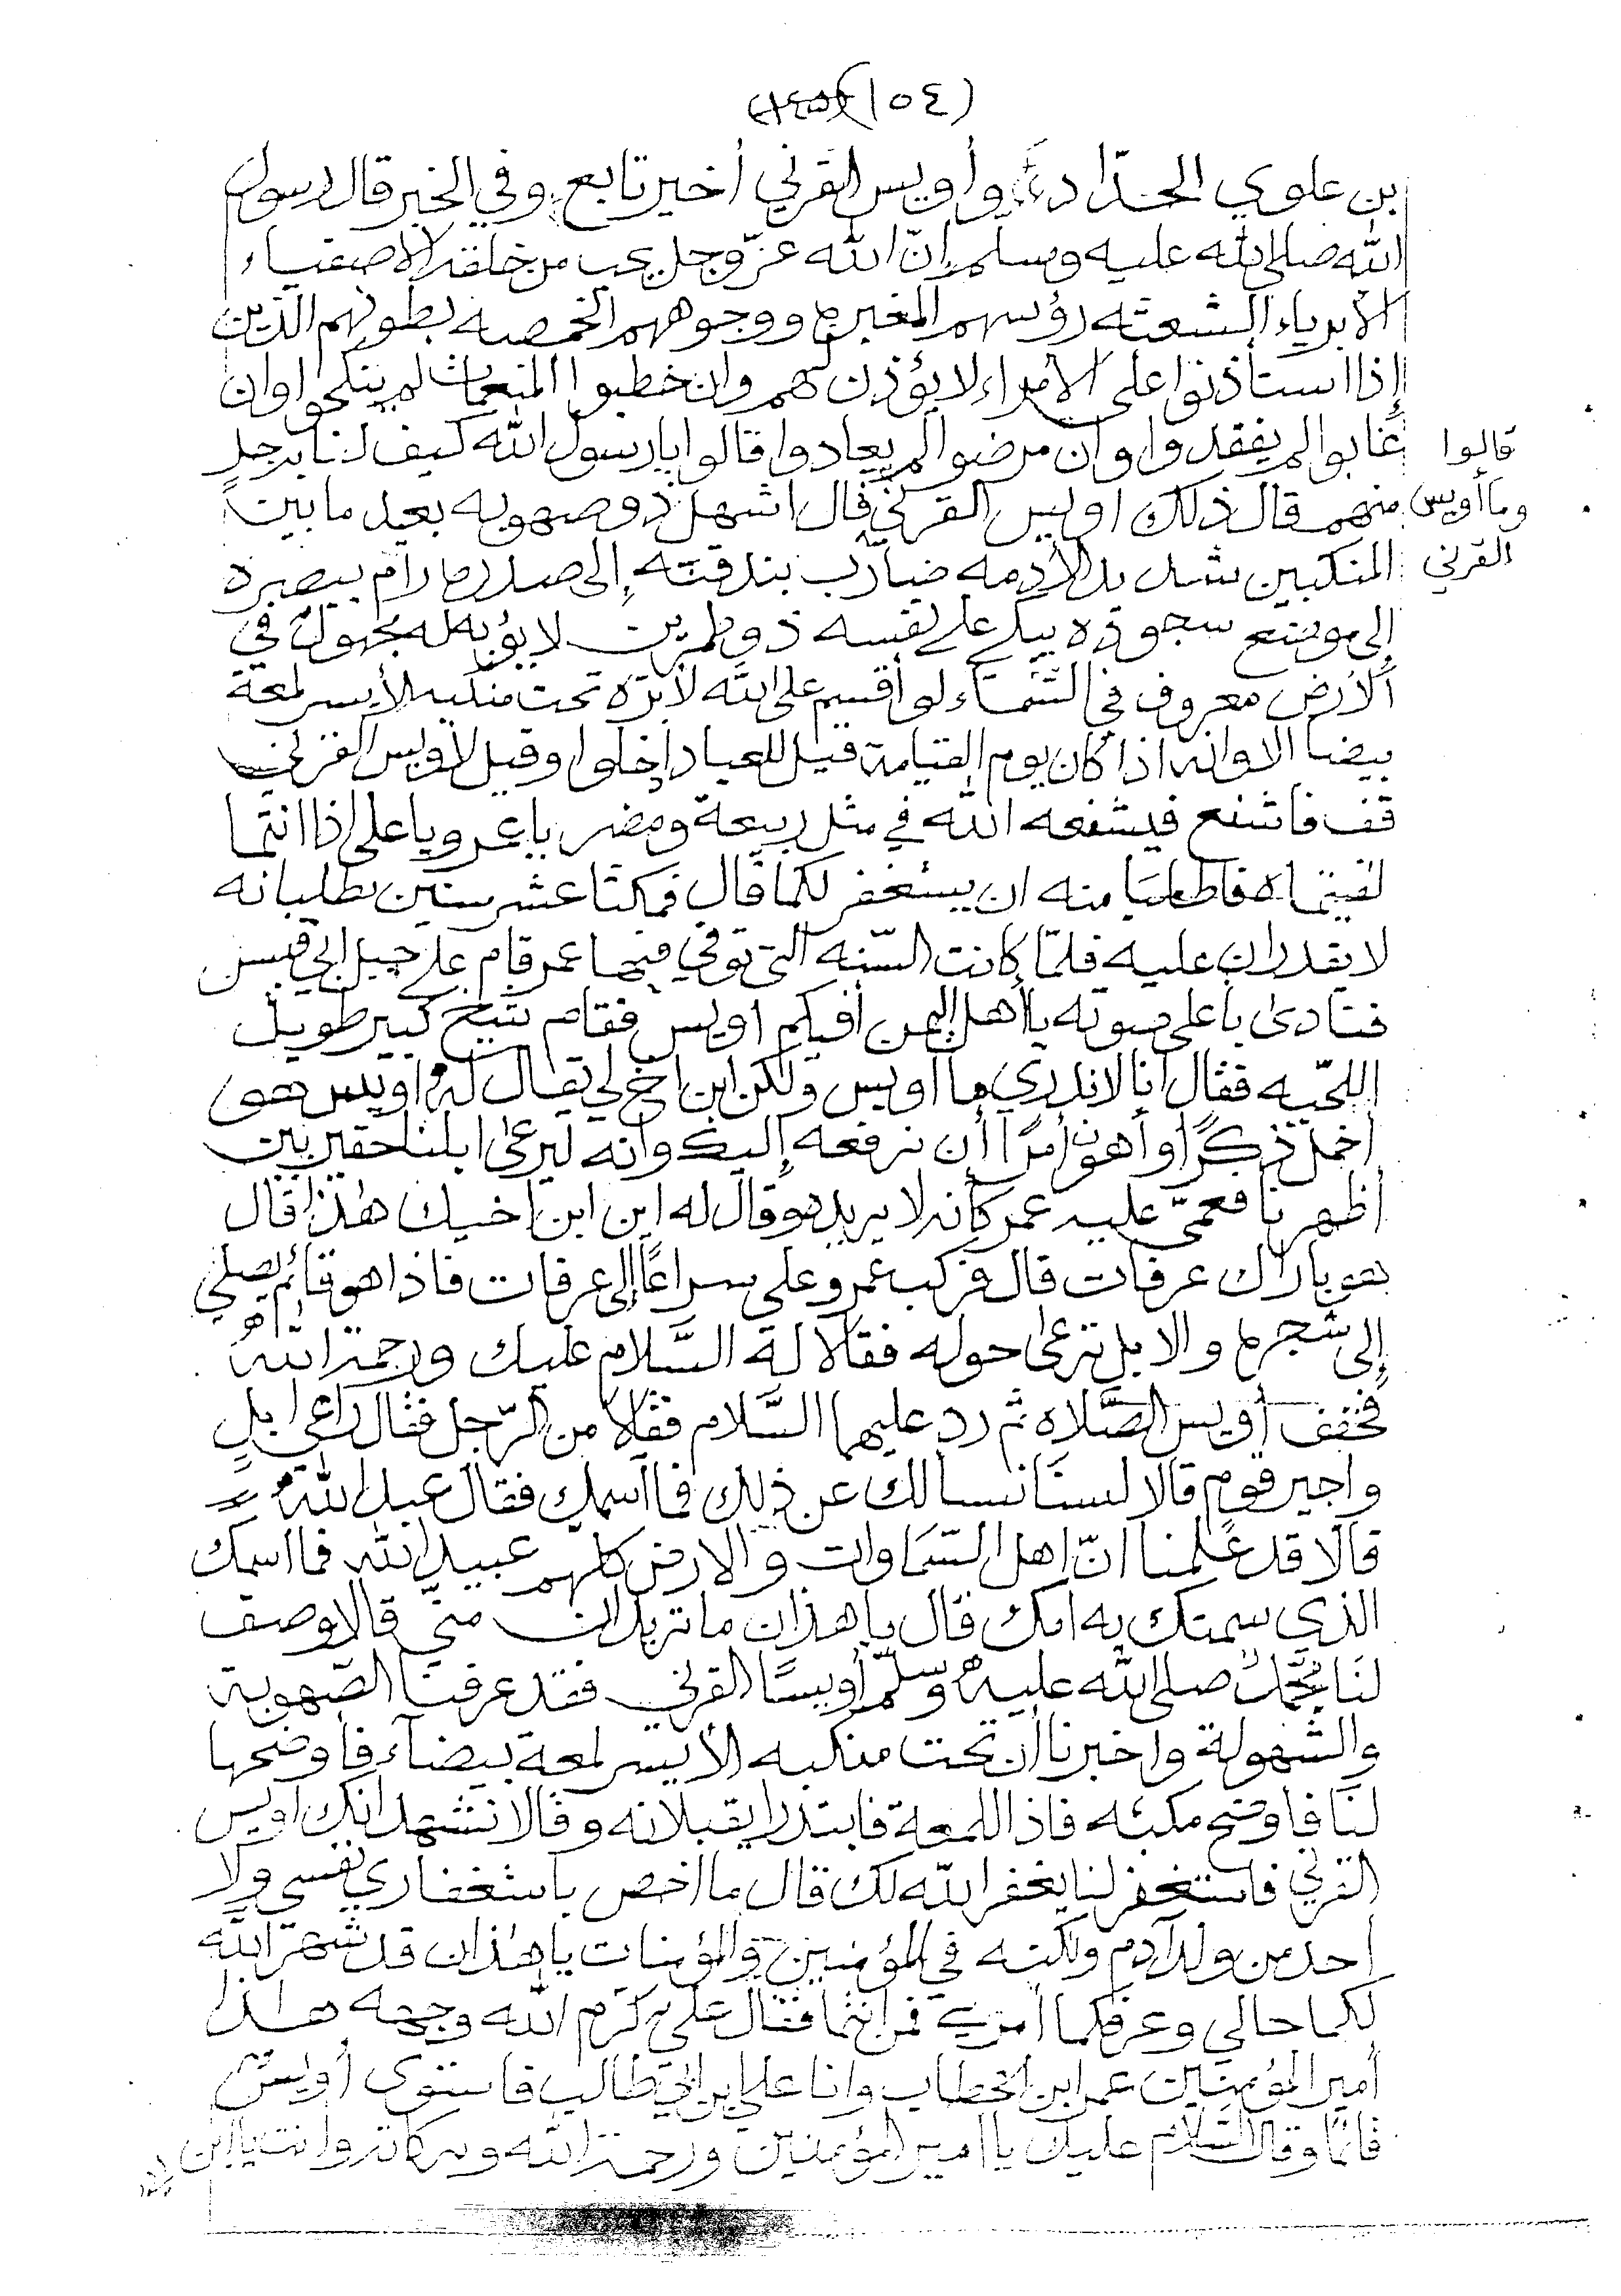 (١٥٤)
بن علوي الحدّاد وأويس القرني أخير تابع وفي الخبر قال رسول
الله صلى الله عليه وسلم إنّ الله عزّ وجل يحب من خلقه الاصفياء
الأبرياء الشعثه رؤسهم المغبره ووجوههم الخمصه بطونهم الذين
إذا استأذنوا على الأمراء لا يؤذن لهم وان خطبوا المنعمات لم ينكحوا وان
غابوا لم يفقدوا وان مرضوا لم يعادوا قالوا يا رسول الله كيف لنا برجل
منهم قال ذلك اويس القرني قال اشهل ذو صهوبه بعيد ما بين
قالوا
وما أويس
القرني
المنكبين شديد الأدمه ضارب بذقنه إلى صدره رام ببصره
إلى موضع سجوده يبكي على نفسه ذو طمرين لا يؤبه له مجهول في
الأرض معروف في السّماء لو أقسم على الله لأبرّه تحت منكبه الأيسر لمعة
بيضا الا وانه اذا كان يوم القيامة قيل للعباد ادخلوا وقيل لأويس القرني
قف فاشفع فيشفعه الله في مثل ربيعة ومضر يا عمر ويا علي اذا انتما
لقيتماه فاطلبا منه ان يستغفر لكما قال فمكثا عشر سنين يطلبانه
لا يقدران عليه فلمّا كانت السّنه التي توفي فيها عمر قام على جبل ابي قبيس
فنادى بأعلى صوته يا أهل اليمن أفيكم اويس فقام شيخ كبير طويل
اللحيه فقال انا لا ندري ما أويس ولكن ابن اخ لي يقال له اويس هو
اخمل ذكرًا وأهون أمرًا أن نرفعه إليك وانه ليرعى ابلنا حقير بين
أظهرنا فعمّى عليه عمر كأنه لا يريده وقال له اين ابن اخيك هذا قال
هو بأراك عرفات قال فركب عمر وعلي سراعًا إلى عرفات فاذا هو قائم يصلي
إلى شجره والابل ترعى حوله فقالا له السّلام عليك ورحمة الله
فخفف أويس الصّلاه ثم رد عليهما السّلام فقالا من الرّجل فقال راعي ابلٍ
واجير قوم قالا لسنا نسألك عن ذلك فما اسمك فقال عبد الله
قالا قد علمنا انّ اهل السّماوات والارض كلهم عبيد الله فما اسمك
الذي سمتك به امك قال يا هذان ما تريدان منّي قالا وصف
لنا محمّد صلى الله عليه وسلّم أويسًا القرني فقد عرفنا الصّهوبة
والشهولة واخبرنا أن تحت منكبه الأيسر لمعة بيضآء فأوضحها
لنا فاوضح مكبئه فاذا اللمعة فابتدرا يقبلانه وقالا نشهد انك اويس
القرني فاستغفر لنا يغفر الله لك قال ما اخص باستغفاري نفسي ولا
احد من ولد آدم ولكنه في المؤمنين والمؤمنات يا هذان قد شهر الله
لكما حالي وعرفكما أمري فمن انتما فقال علي كرّم الله وجهه هذا
أمير المؤمنين عمر ابن الخطاب وانا علي ابن ابي طالب فاستوى أويس
قائمًا وقال السّلام عليك يا امير المؤمنين ورحمة الله وبركاته وانت يا ابن